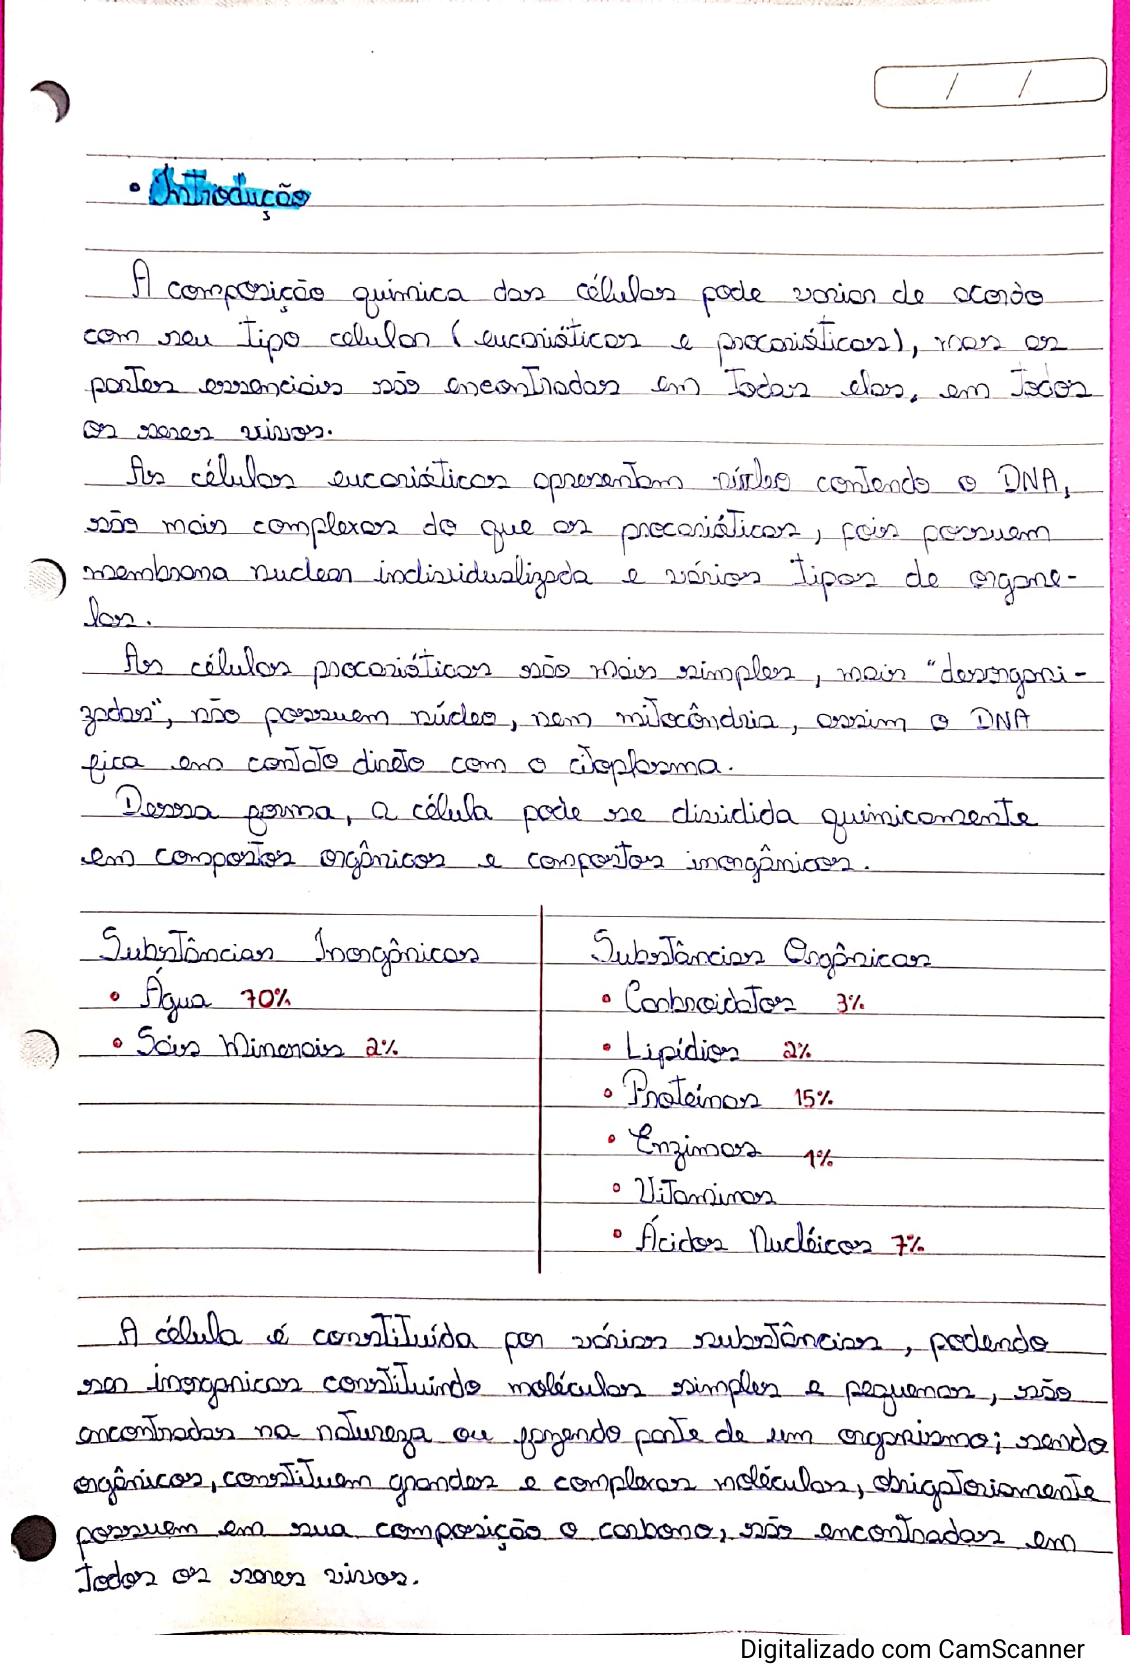 / /
• Introdução
A composição química das células pode variar de acordo
com seu tipo celular (eucarióticas e procarióticas), mas as
partes essenciais são encontradas em todas elas, em todos
os seres vivos.
As células eucarióticas apresentam núcleo contendo o DNA,
são mais complexas do que as procarióticas, pois possuem
membrana nuclear individualizada e vários tipos de organe-
las.
As células procarióticas são mais simples, mais "desorgani-
zadas", não possuem núcleo, nem mitocôndria, assim o DNA
fica em contato direto com o citoplasma.
Dessa forma, a célula pode se dividida quimicamente
em compostos orgânicos e compostos inorgânicos.
Substâncias Inorgânicas
• Água 70%
• Sais Minerais 2%
Substâncias Orgânicas
• Carbroidatos 3%
• Lipídios 2%
• Proteínas 15%
• Enzimas 1%
• Vitaminas
• Ácidos Nucléicos 7%
A célula é constituída por várias substâncias, podendo
ser inorganicas constituindo moléculas simples e pequenas, são
encontradas na natureza ou fazendo parte de um organismo; sendo
orgânicas, constituem grandes e complexas moléculas, obrigatoriamente
possuem em sua composição o carbono, são encontradas em
todos os seres vivos.
Digitalizado com CamScanner